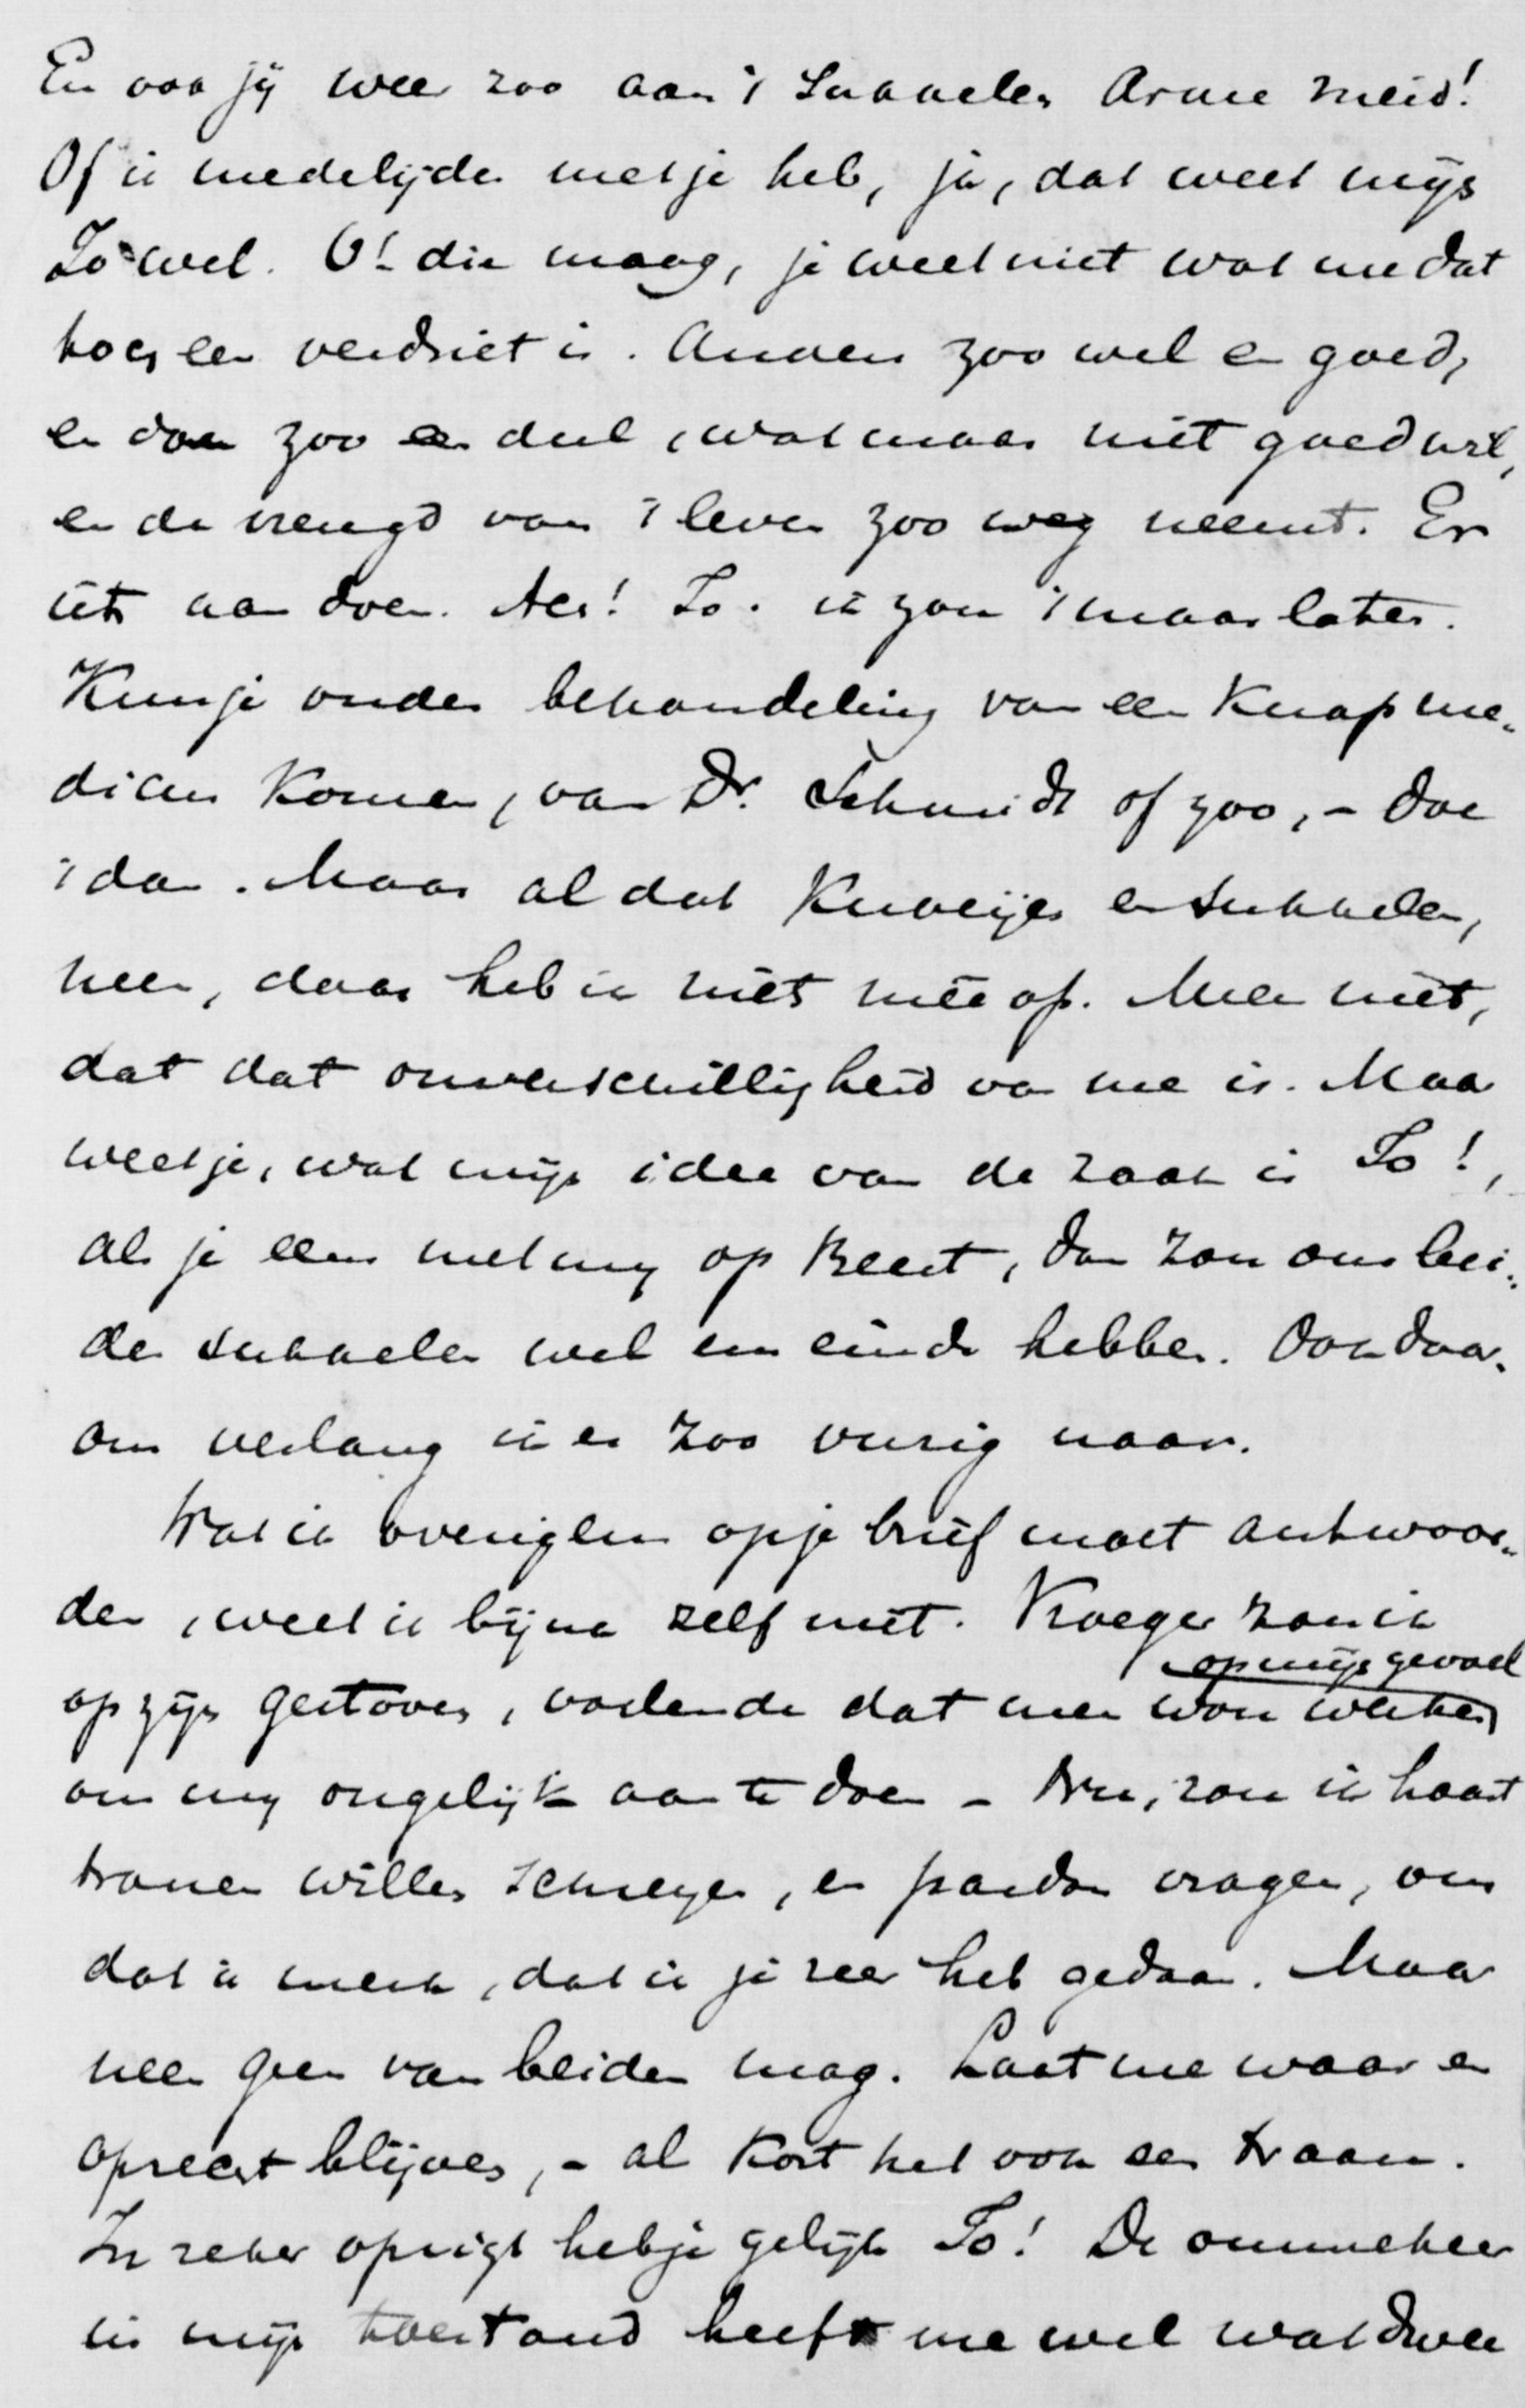 En ook jij weer zoo aan 't Sukkelen Arme meid!
Of ik medelijden met je heb, ja, dat weet mijn
To wel. O! die maag, je weet niet wat me dat
toch een verdriet is. Anders zoo wel en goed,
en dan zoo een deel, wat maar niet goed wil,
en de vreugd van 't leven zoo weg neemt. Er
iets aan doen. Ach! To. ik zou 't maar laten.
Kun je onder behandeling van een Knap me-
dicus Komen, van Dr. Schmidt of zoo, - doe
't dan. Maar al dat Knoeijen en sukkelen,
neen, daar heb ik niets mée op. Meen niet,
dat dat onverschilligheid van me is. Maar
weet je, wat mijn idee van de zaak is To!,
als je eens met mij op Reest, dan zou ons bei-
der sukkelen wel een einde hebben. Ook daar-
om verlang ik er zoo vurig naar.
Wat ik overigens op je brief moet antwoor-
den, weet ik bijna zelf niet. Vroeger zou ik
op mijn gevoel
op zijn gestoven, voelende dat men wou werken
om mij ongelijk aan te doen - Nu, zou ik haast
tranen willen schreyen, en pardon vragen, om
dat ik merk, dat ik je zeer heb gedaan. Maar
neen geen van beiden mag. Laat me waar en
oprecht blijven, - al Kost het ook een traan.
In zeker opzigt heb je gelijk To! De ommekeer
in mijn toestand heeft me wel wat